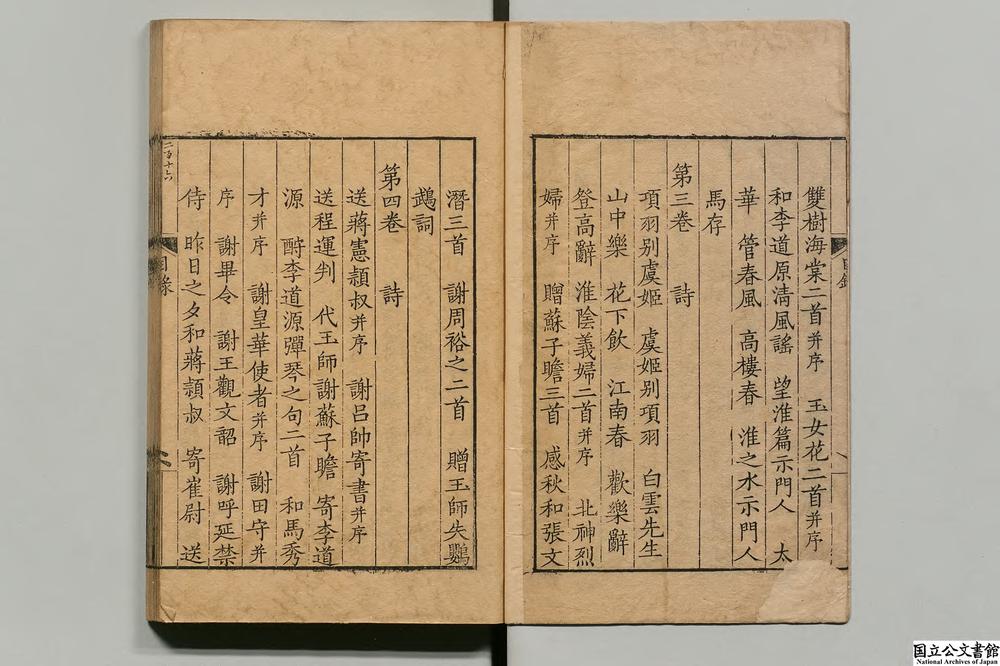 雙樹海棠二首并序　玉女花二首并序
和李道原清風謠　望淮篇示門人　太
華　管春風　高樓春　淮之水示門人
馬存
第三卷　詩
項羽別虞姬　虞姬別項羽　白雲先生
山中樂　花下飲　江南春　歡樂辭
登高辭　淮陰義婦二首并序　北神烈
婦并序　贈蘇子瞻三首　感秋和張文
目錄
潛三首　謝周裕之二首　贈王師失鸚
鵡詞
第四卷　詩
送蔣憲穎叔并序　謝呂帥寄書并序
送程運判　代王師謝蘇子瞻　寄李道
源　酧李道源彈琴之句二首　和馬秀
才并序　謝皇華使者并序　謝田守并
序　謝畢令　謝王觀文韶　謝呼延禁
侍　昨日之夕和蔣穎叔　寄崔尉　送
目錄
二百十六
国立公文書館
National Archives of Japan